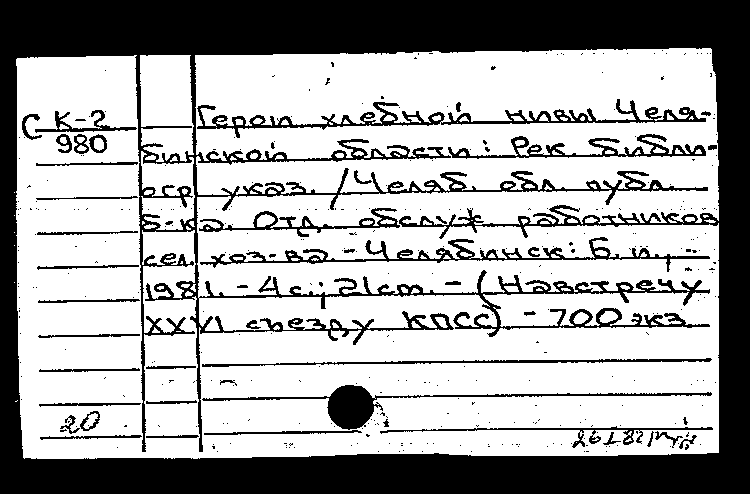 С К-2 Герои хлебной нивы Челя-
980
бинской области: Рек. библи-
огр. указ. /Челяб. обл. публ.
б-ка. Отд. обслуж. работников
сел. хоз-ва. - Челябинск: Б. и., -
1981. - 4 с.; 21 cm. - (Навстречу
XXVI съезду КПСС). - 700 экз.
20
26 I 82